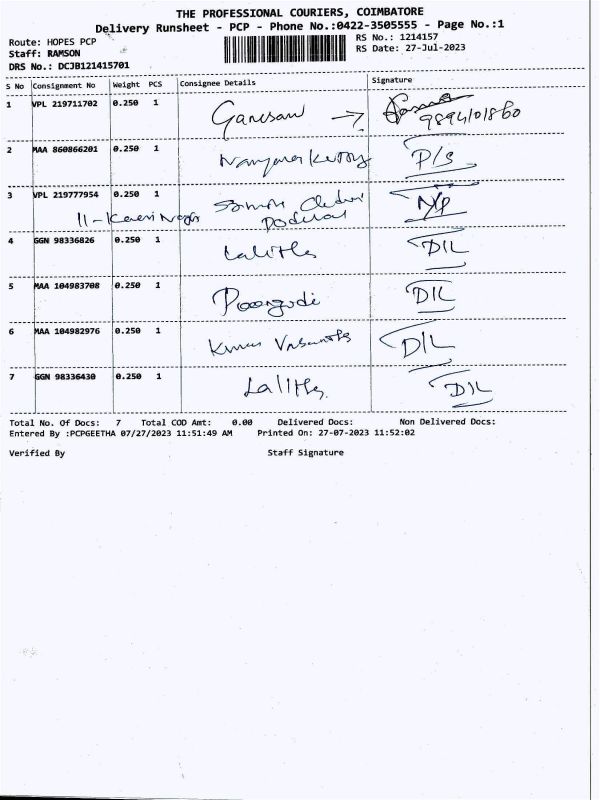 THE PROFESSIONAL COURIERS, COIMBATORE
Delivery Runsheet - PCP - Phone No.:0422-3505555 - Page No.:1
Route: HOPES PCP RS No.: 1214157
Staff: RAMSON RS Date: 27-Jul-2023
DRS No.: DCJB121415701
S No Consignment No Weight PCS Consignee Details Signature
1 VPL 219711702 0.250 1 Ganesan
2 MAA 860866201 0.250 1 P/S
3 VPL 219777954 0.250 1
11-
4 GGN 98336826 0.250 1 Lalitha D/L
5 MAA 104983708 0.250 1 D/L
6 MAA 104982976 0.250 1 Kumar Vasantha D/L
7 GGN 98336430 0.250 1 Lalitha D/L
Total No. Of Docs: 7 Total COD Amt: 0.00 Delivered Docs: Non Delivered Docs:
Entered By :PCPGEETHA 07/27/2023 11:51:49 AM Printed On: 27-07-2023 11:52:02
Verified By Staff Signature